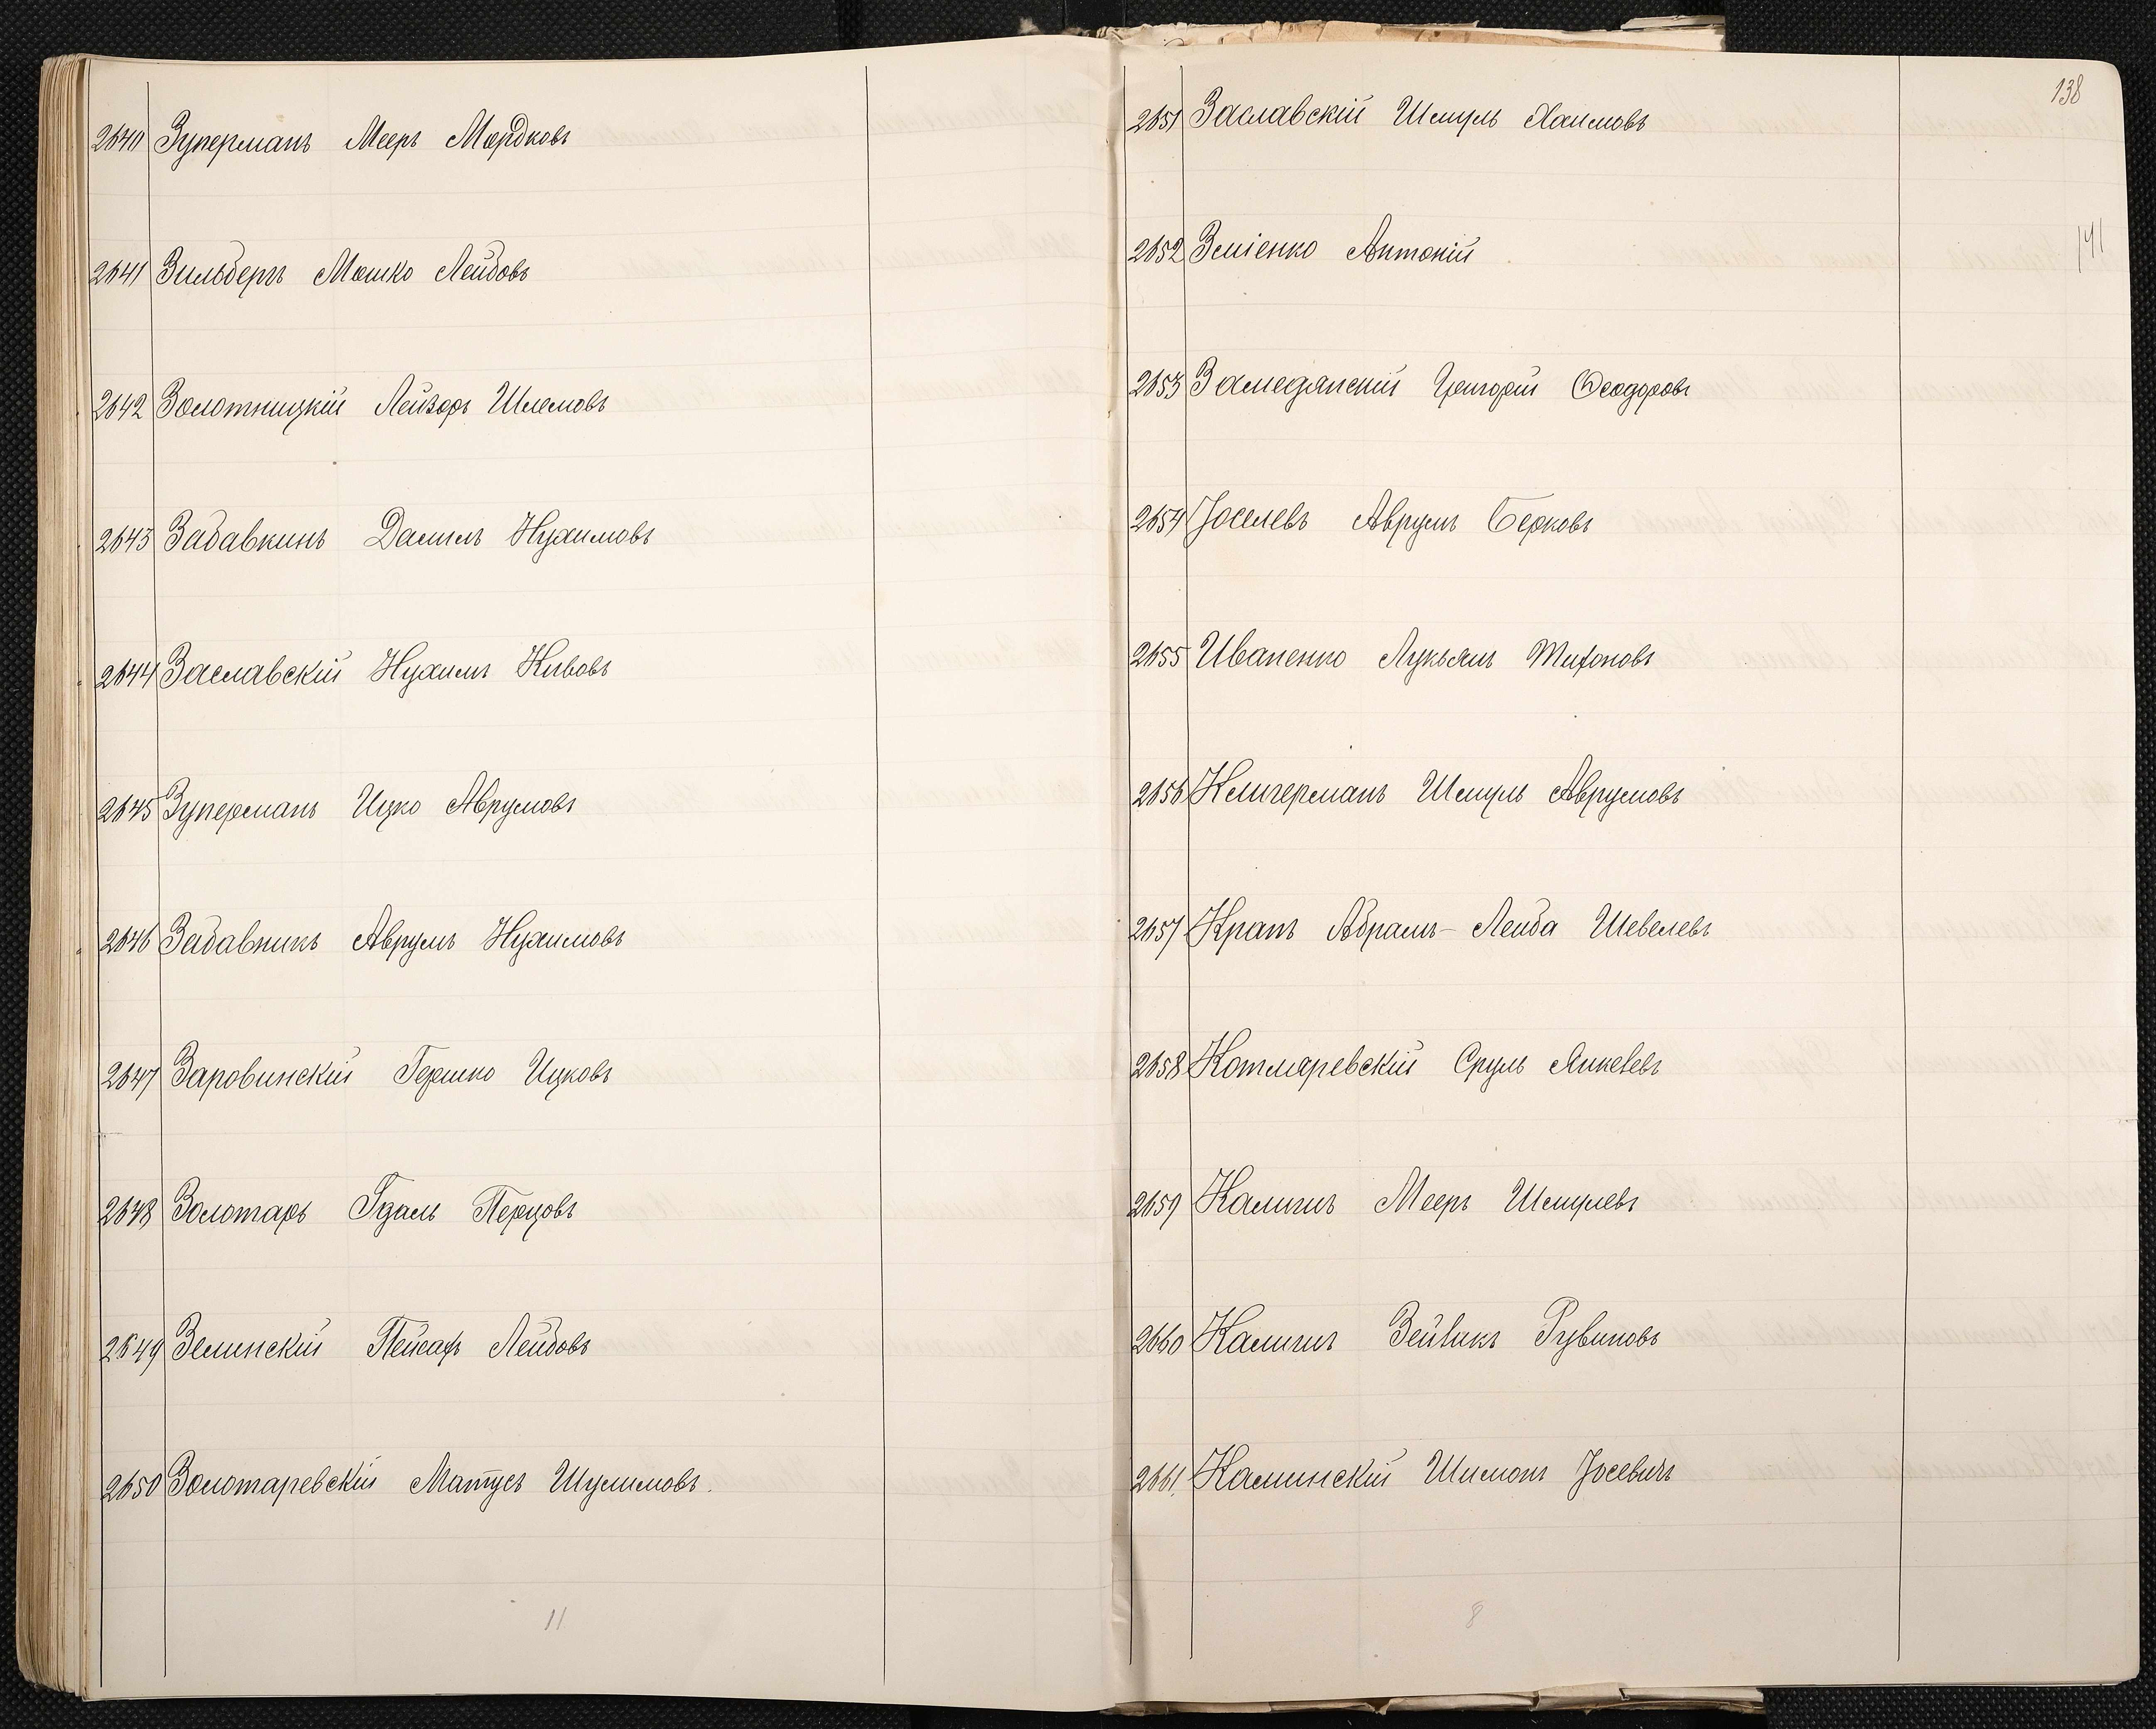 2640 Зуперманъ Мееръ Мордковъ
2641 Зильберъ Мошко Лейбовъ
2642 Золотницкій Лейзоръ Шлемовъ
2643 Забавкинъ Даніилъ Нухимовъ
2644 Заславскій Нухимъ Кивовъ
2645 Зуперманъ Ицко Аврумовъ
2646 Забавкинъ Аврумъ Нухимовъ
2647 Заровинскій Гершко Ицковъ
2648 Золотарь Гдаль Перцовъ
2649 Зелинскій Пейсахъ Лейбовъ
2650 Золотаревскій Матусъ Шулимовъ.
11
138
2651 Заславскій Шмуль Хаимовъ
2652 Зміенко Антоній
141
2653 Григорій Ѳеодоровъ
2654 Іоселевъ Аврумъ Берковъ
2655 Иваненко Лукьянъ Тихоновъ
2656 Клигерманъ Шмуль Аврумовъ
2657 Кранъ Абрамъ-Лейба Шевелевъ
2658 Котляревскій Сруль Янкелевъ
2659 Калигъ Мееръ Шмулевъ
2660 Калигъ Рувиновъ
2661. Калинскій Шимонъ Іосевичъ
8